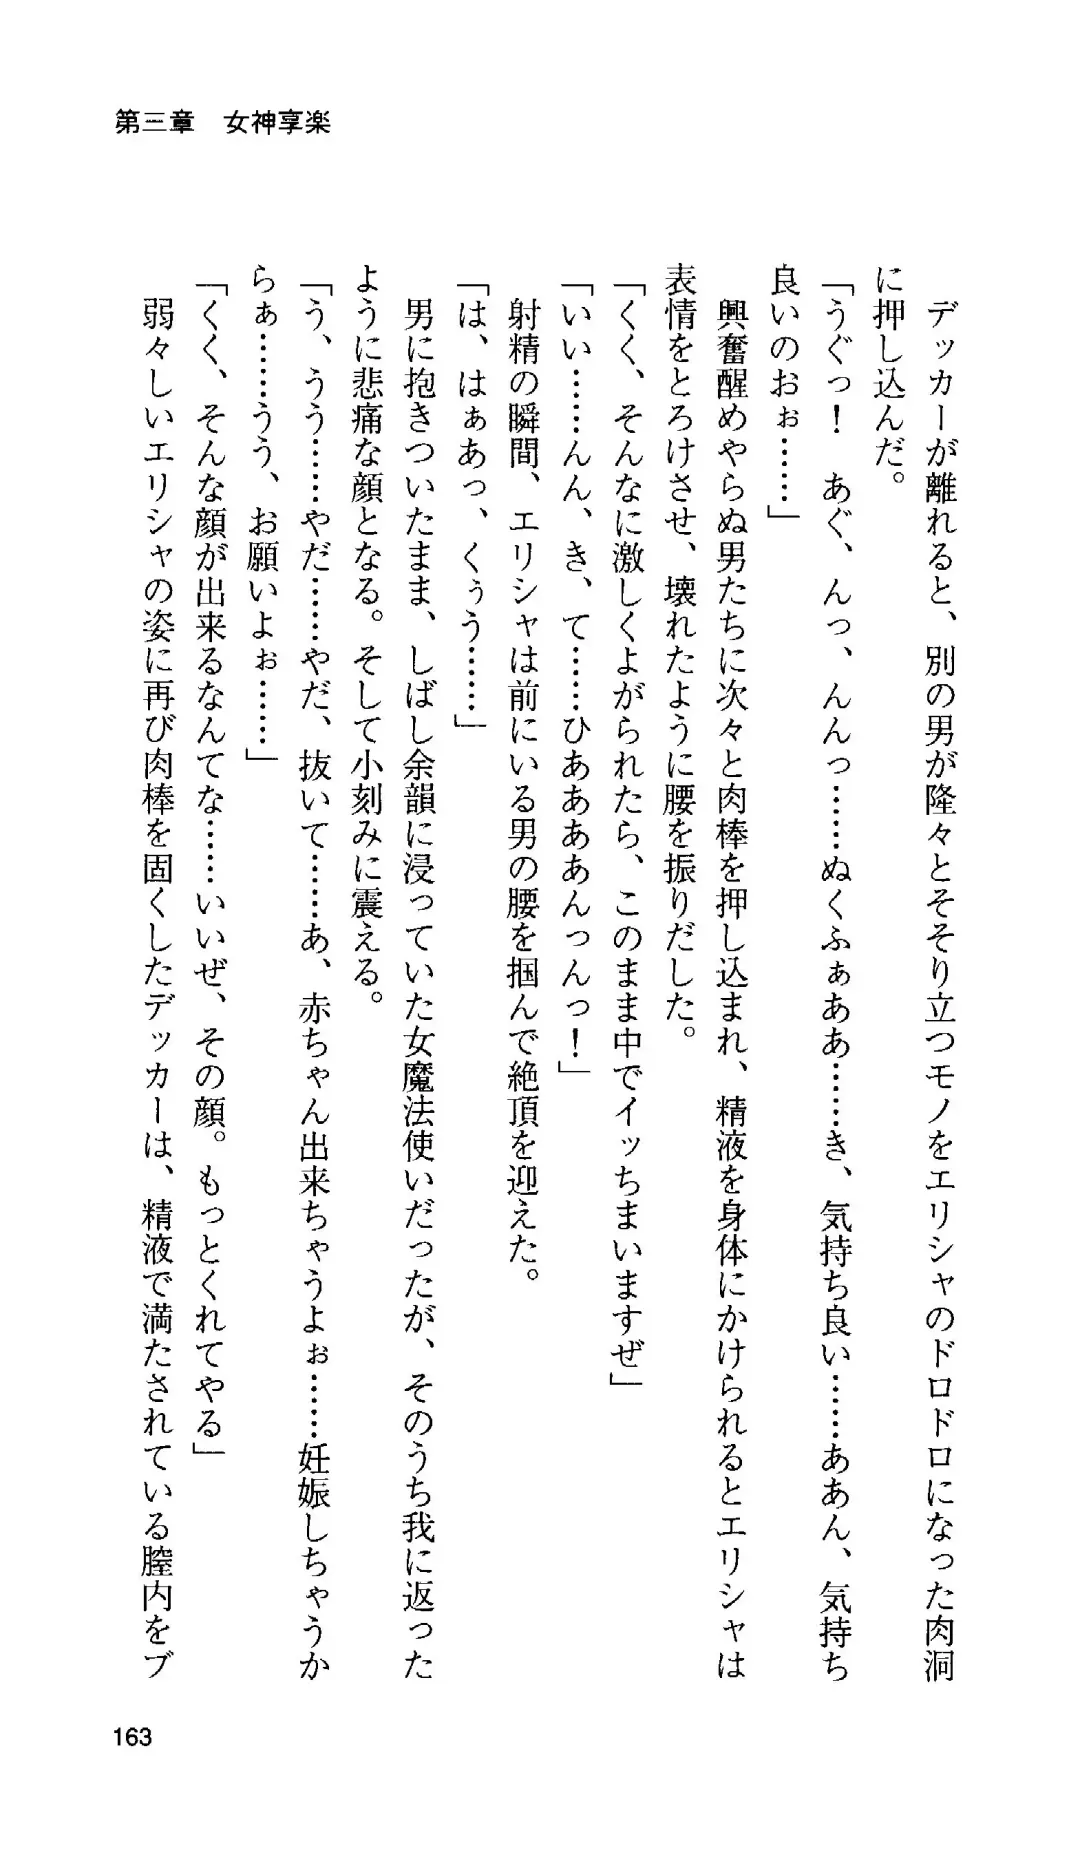 第三章　女神享楽
　デッカーが離れると、別の男が隆々とそそり立つモノをエリシャのドロドロになった肉洞
に押し込んだ。
「うぐっ！　あぐ、んっ、んんっ……ぬくふぁああ……き、気持ち良い……ああん、気持ち
良いのおぉ……」
　興奮醒めやらぬ男たちに次々と肉棒を押し込まれ、精液を身体にかけられるとエリシャは
表情をとろけさせ、壊れたように腰を振りだした。
「くく、そんなに激しくよがられたら、このまま中でイッちまいますぜ」
「いい……んん、き、て……ひああああんっんっ！」
　射精の瞬間、エリシャは前にいる男の腰を掴んで絶頂を迎えた。
「は、はぁあっ、くぅう……」
　男に抱きついたまま、しばし余韻に浸っていた女魔法使いだったが、そのうち我に返った
ように悲痛な顔となる。そして小刻みに震える。
「う、うう……やだ……やだ、抜いて……あ、赤ちゃん出来ちゃうよぉ……妊娠しちゃうか
らぁ……うう、お願いよぉ……」
「くく、そんな顔が出来るなんてな……いいぜ、その顔。もっとくれてやる」
　弱々しいエリシャの姿に再び肉棒を固くしたデッカーは、精液で満たされている膣内をブ
163